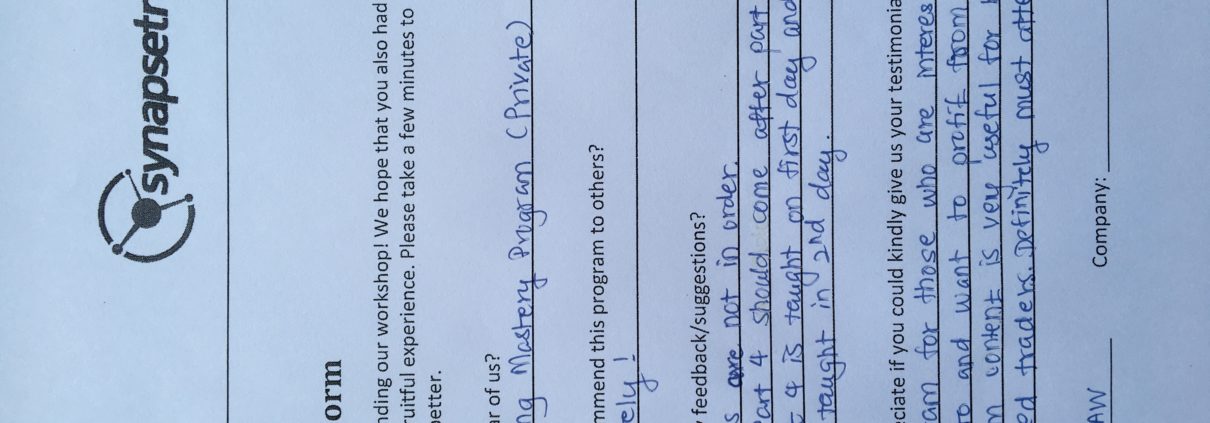 synapsetr
orm
nding our workshop! We hope that you also had
ruitful experience. Please take a few minutes to
etter.
ar of us?
ng Mastery Program (Private)
mmend this program to others?
ely!
feedback/suggestions?
s are not in order.
art 4 should come after part
4 is taught on first day and
taught in 2nd day.
ciate if you could kindly give us your testimonia
am for those who are interes
to and want to profit from
n content is very useful for
ed traders. Definitely must atte
AW Company: